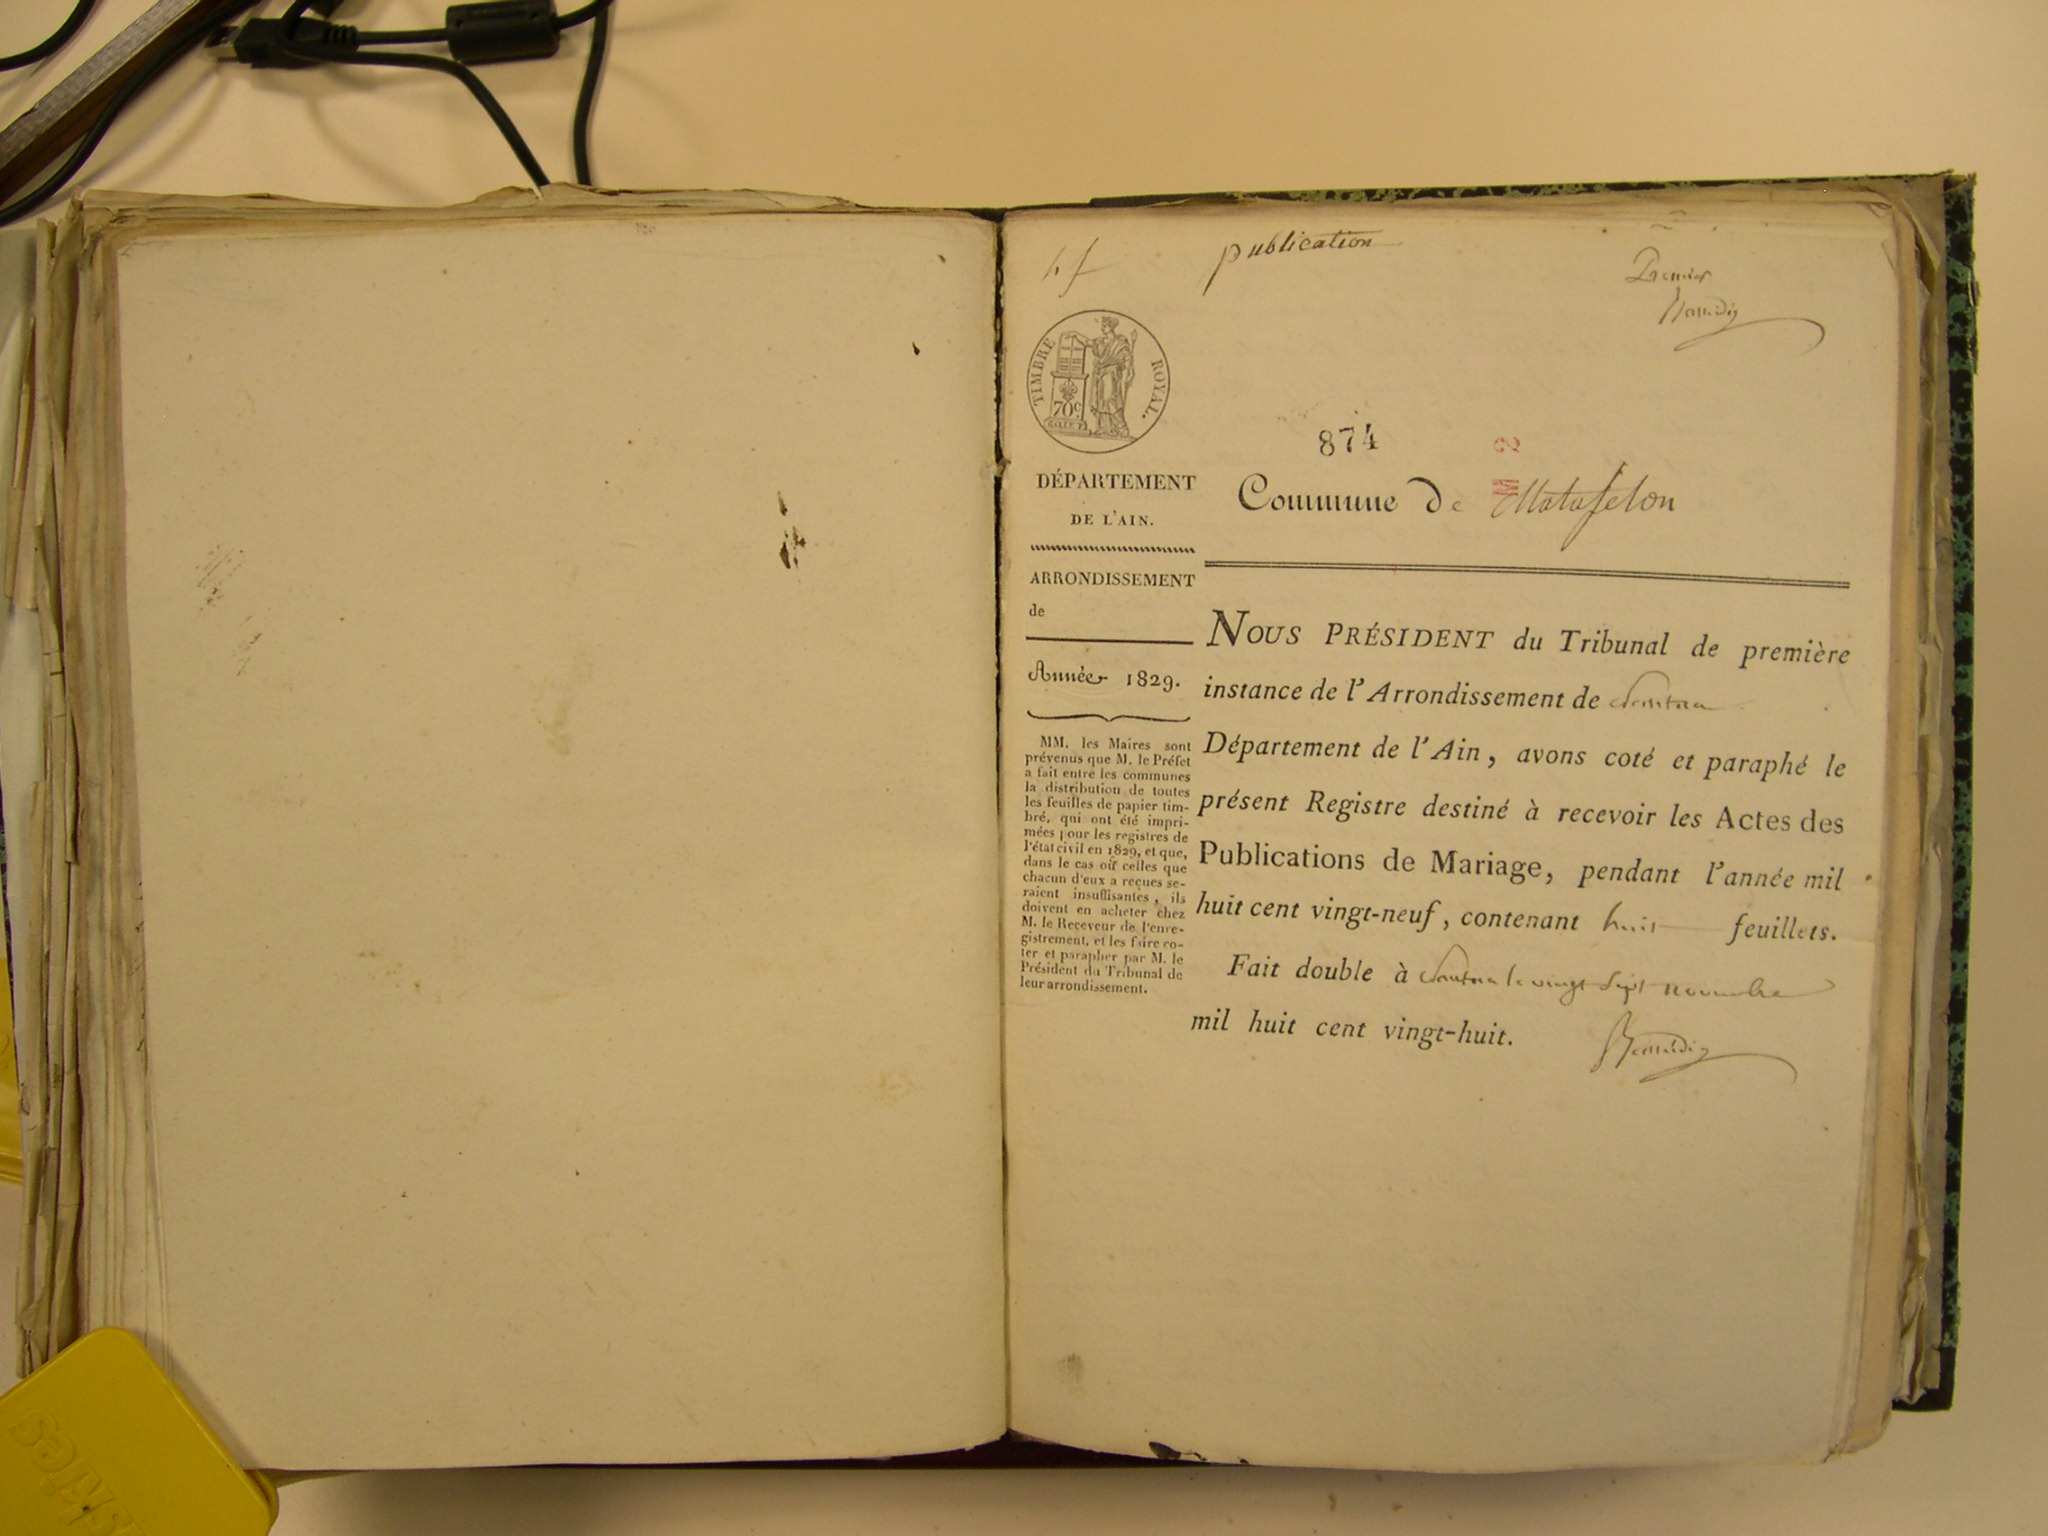 publication
Premier
TIMBRE ROYAL.
70c
874
DÉPARTEMENT
DE L'AIN.
Commune de Matafelon
ARRONDISSEMENT
de
Année 1829.
MM. les Maires sont
prévenus que M. le Préfet
a fait entre les communes
la distribution de toutes
les feuilles de papier tim-
bré, qui ont été impri-
mées pour les registres de
l'état civil en 1829, et que,
dans le cas où celles que
chacun d'eux a reçues se-
raient insuffisantes, ils
doivent en acheter chez
M. le Receveur de l'enre-
gistrement, et les faire co-
ter et parapher par M. le
Président du Tribunal de
leur arrondissement.
NOUS PRÉSIDENT du Tribunal de première
instance de l'Arrondissement de Nantua
Département de l'Ain, avons coté et paraphé le
présent Registre destiné à recevoir les Actes des
Publications de Mariage, pendant l'année mil
huit cent vingt-neuf, contenant huit feuillets.
Fait double à Nantua le vingt sept novembre
mil huit cent vingt-huit.